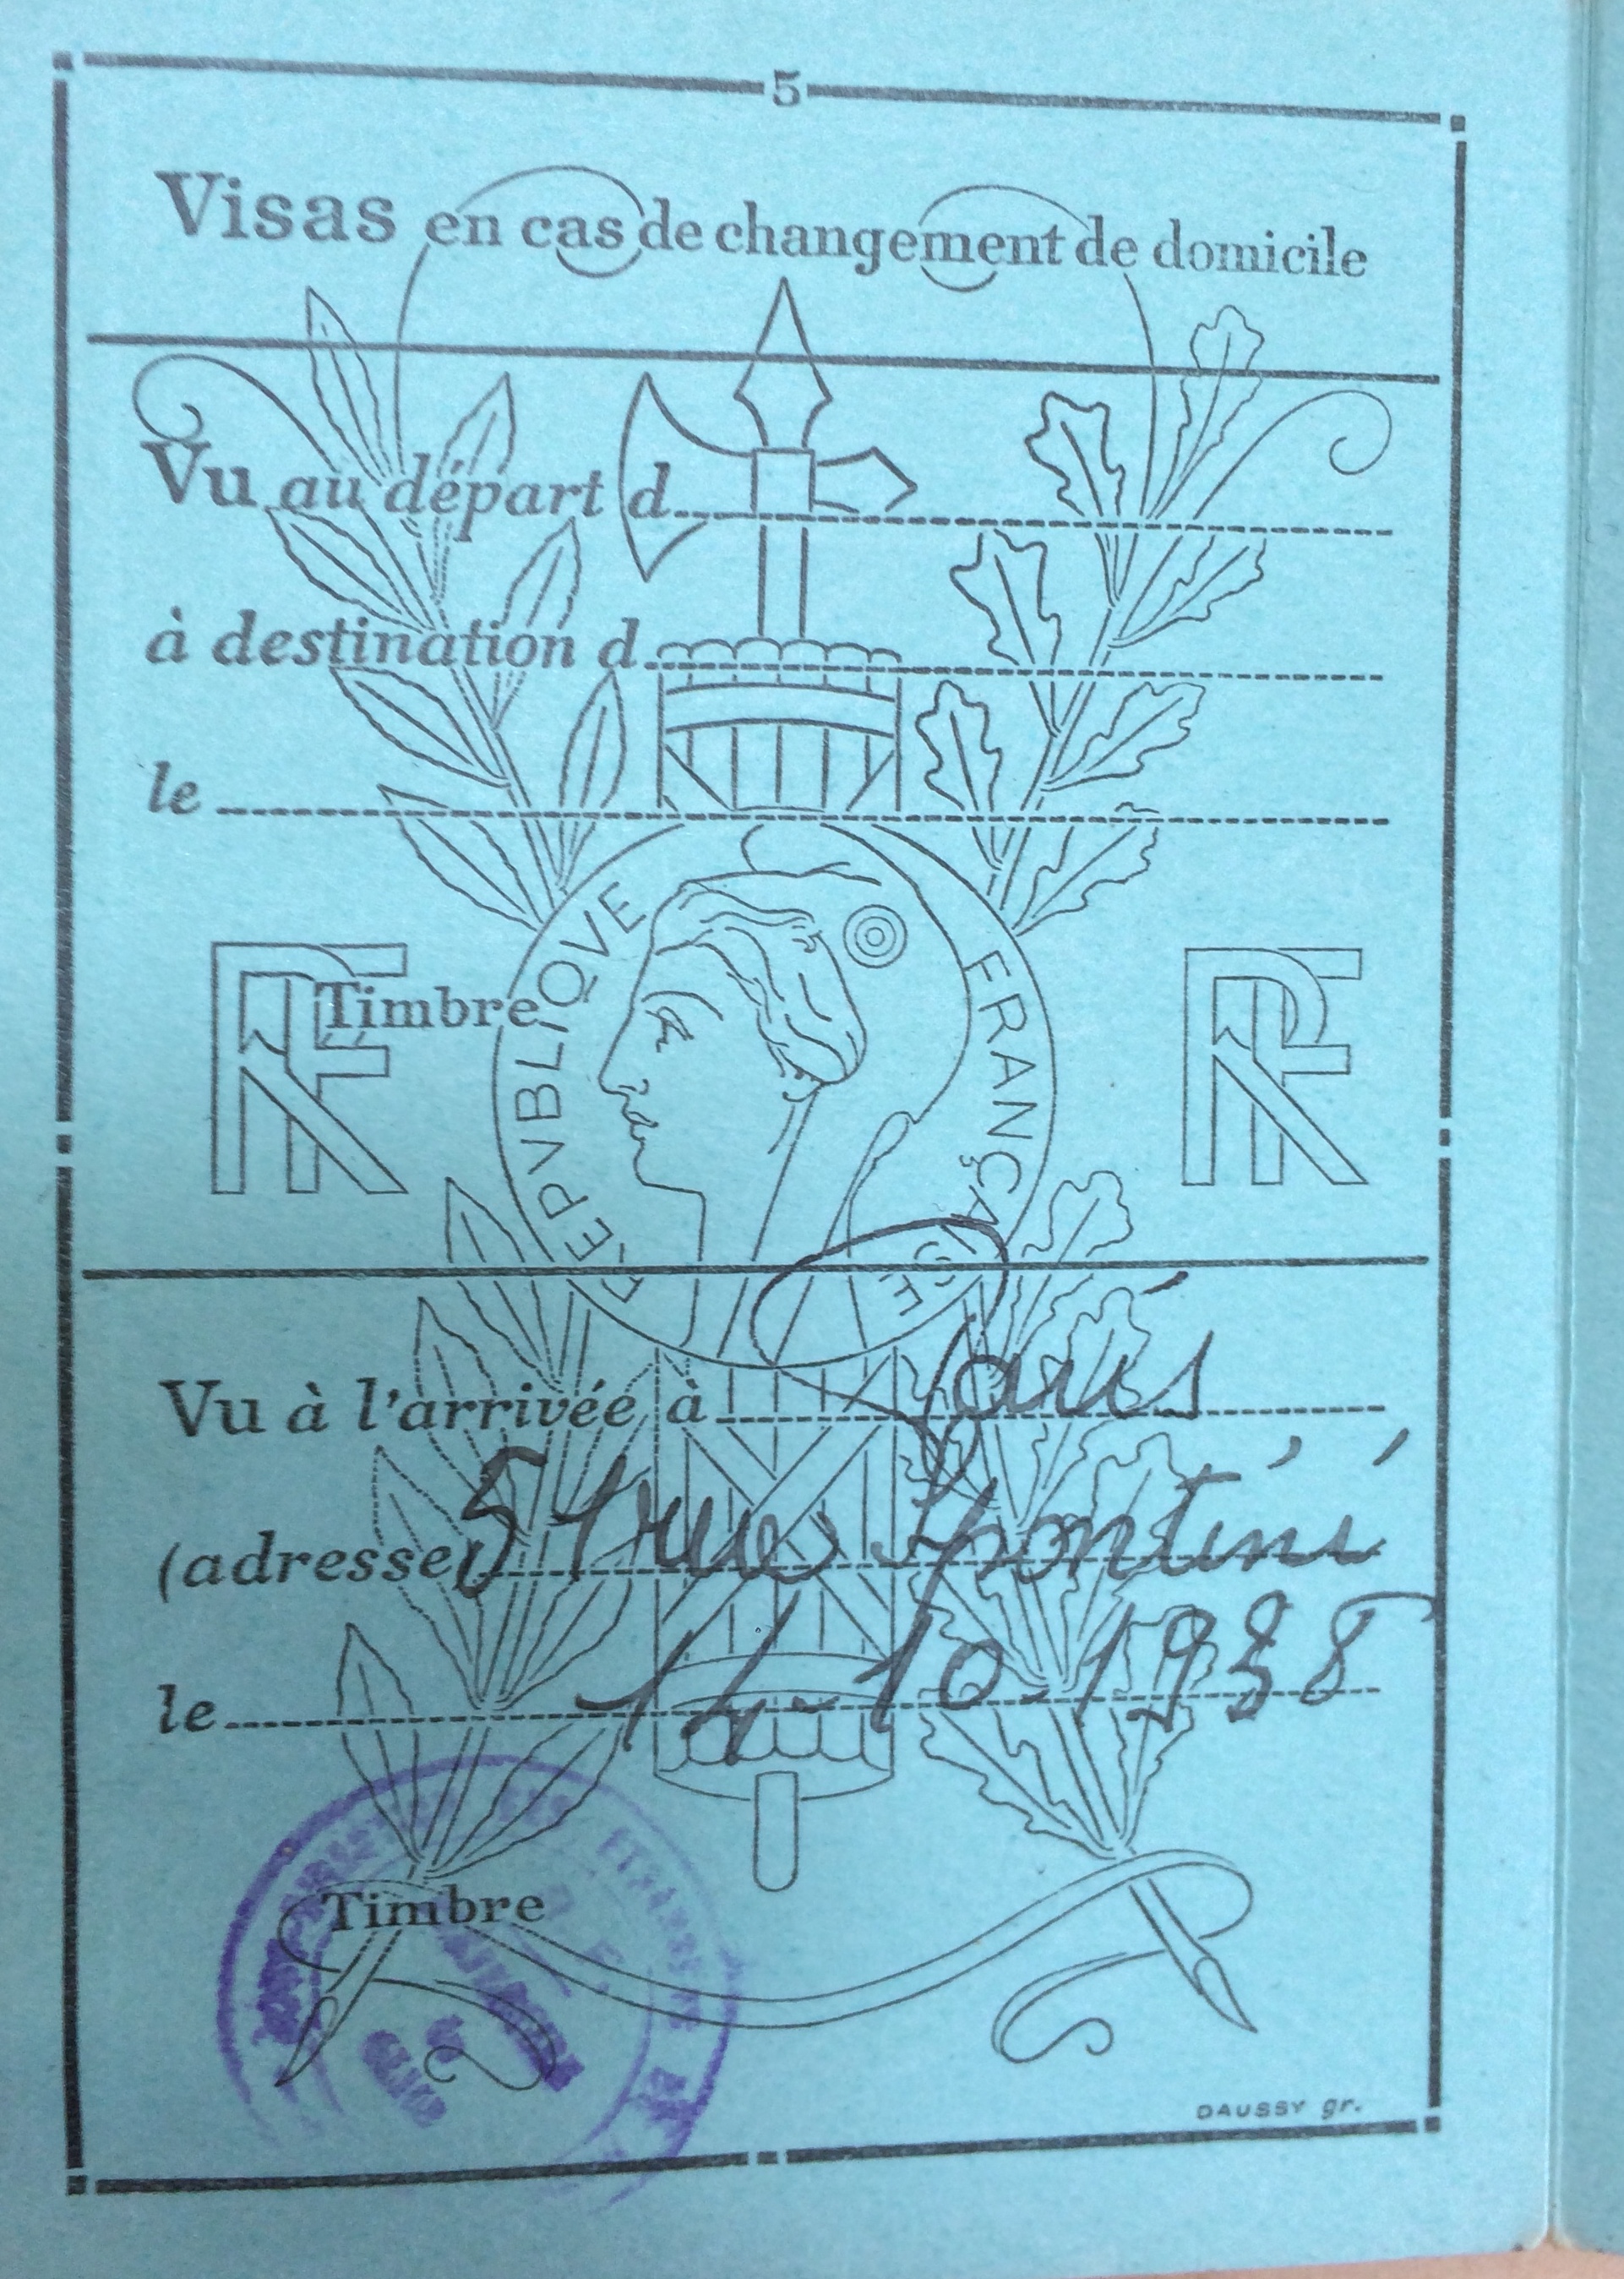 5
Visas en cas de changement de domicile
Vu au départ d
à destination d
le
RF Timbre RÉPVBLIQVE FRANÇAISE RF
Vu à l'arrivée à Paris
(adresse) 51 rue Spontini
le 14-10-1938
Timbre
DAUSSY gr.